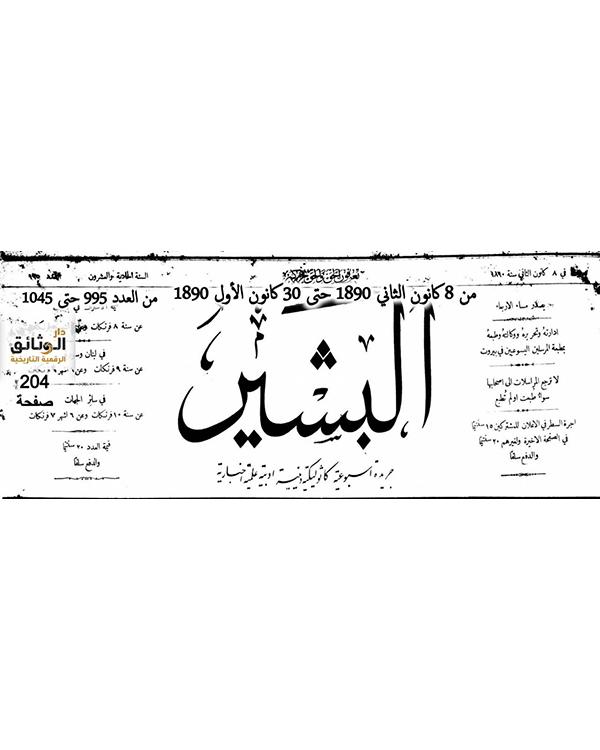 في ٨ كانون الثاني سنة ١٨٩٠
السنة الحادية والعشرون
من 8 كانون الثاني 1890 حتى 30 كانون الأول 1890
من العدد 995 حتى 1045
البشير
جريدة اسبوعية كاثوليكية دينية ادبية علمية اخبارية
مساء الاربعاء
ادارته وتحريره ووكالته وطبعه
بمطبعة المرسلين اليسوعيين في بيروت
لا ترجع المراسلات الى اصحابها
سواء طبعت او لم تطبع
اجرة السطر في الاعلان للمشتركين ١٥ سنتيمًا
في الصفحة الاخيرة ولغيرهم ٢٠ سنتيمًا
والدفع سلفًا
عن سنة ٨ فرنكات
في لبنان
عن سنة ٩ فرنكات وعن
في سائر الجهات
عن سنة ١٠ فرنكات وعن ٦ اشهر ٧ فرنكات
قيمة العدد ٢٠ سنتيمًا
والدفع سلفًا
دار
الوثائق
الرقمية التاريخية
204
صفحة